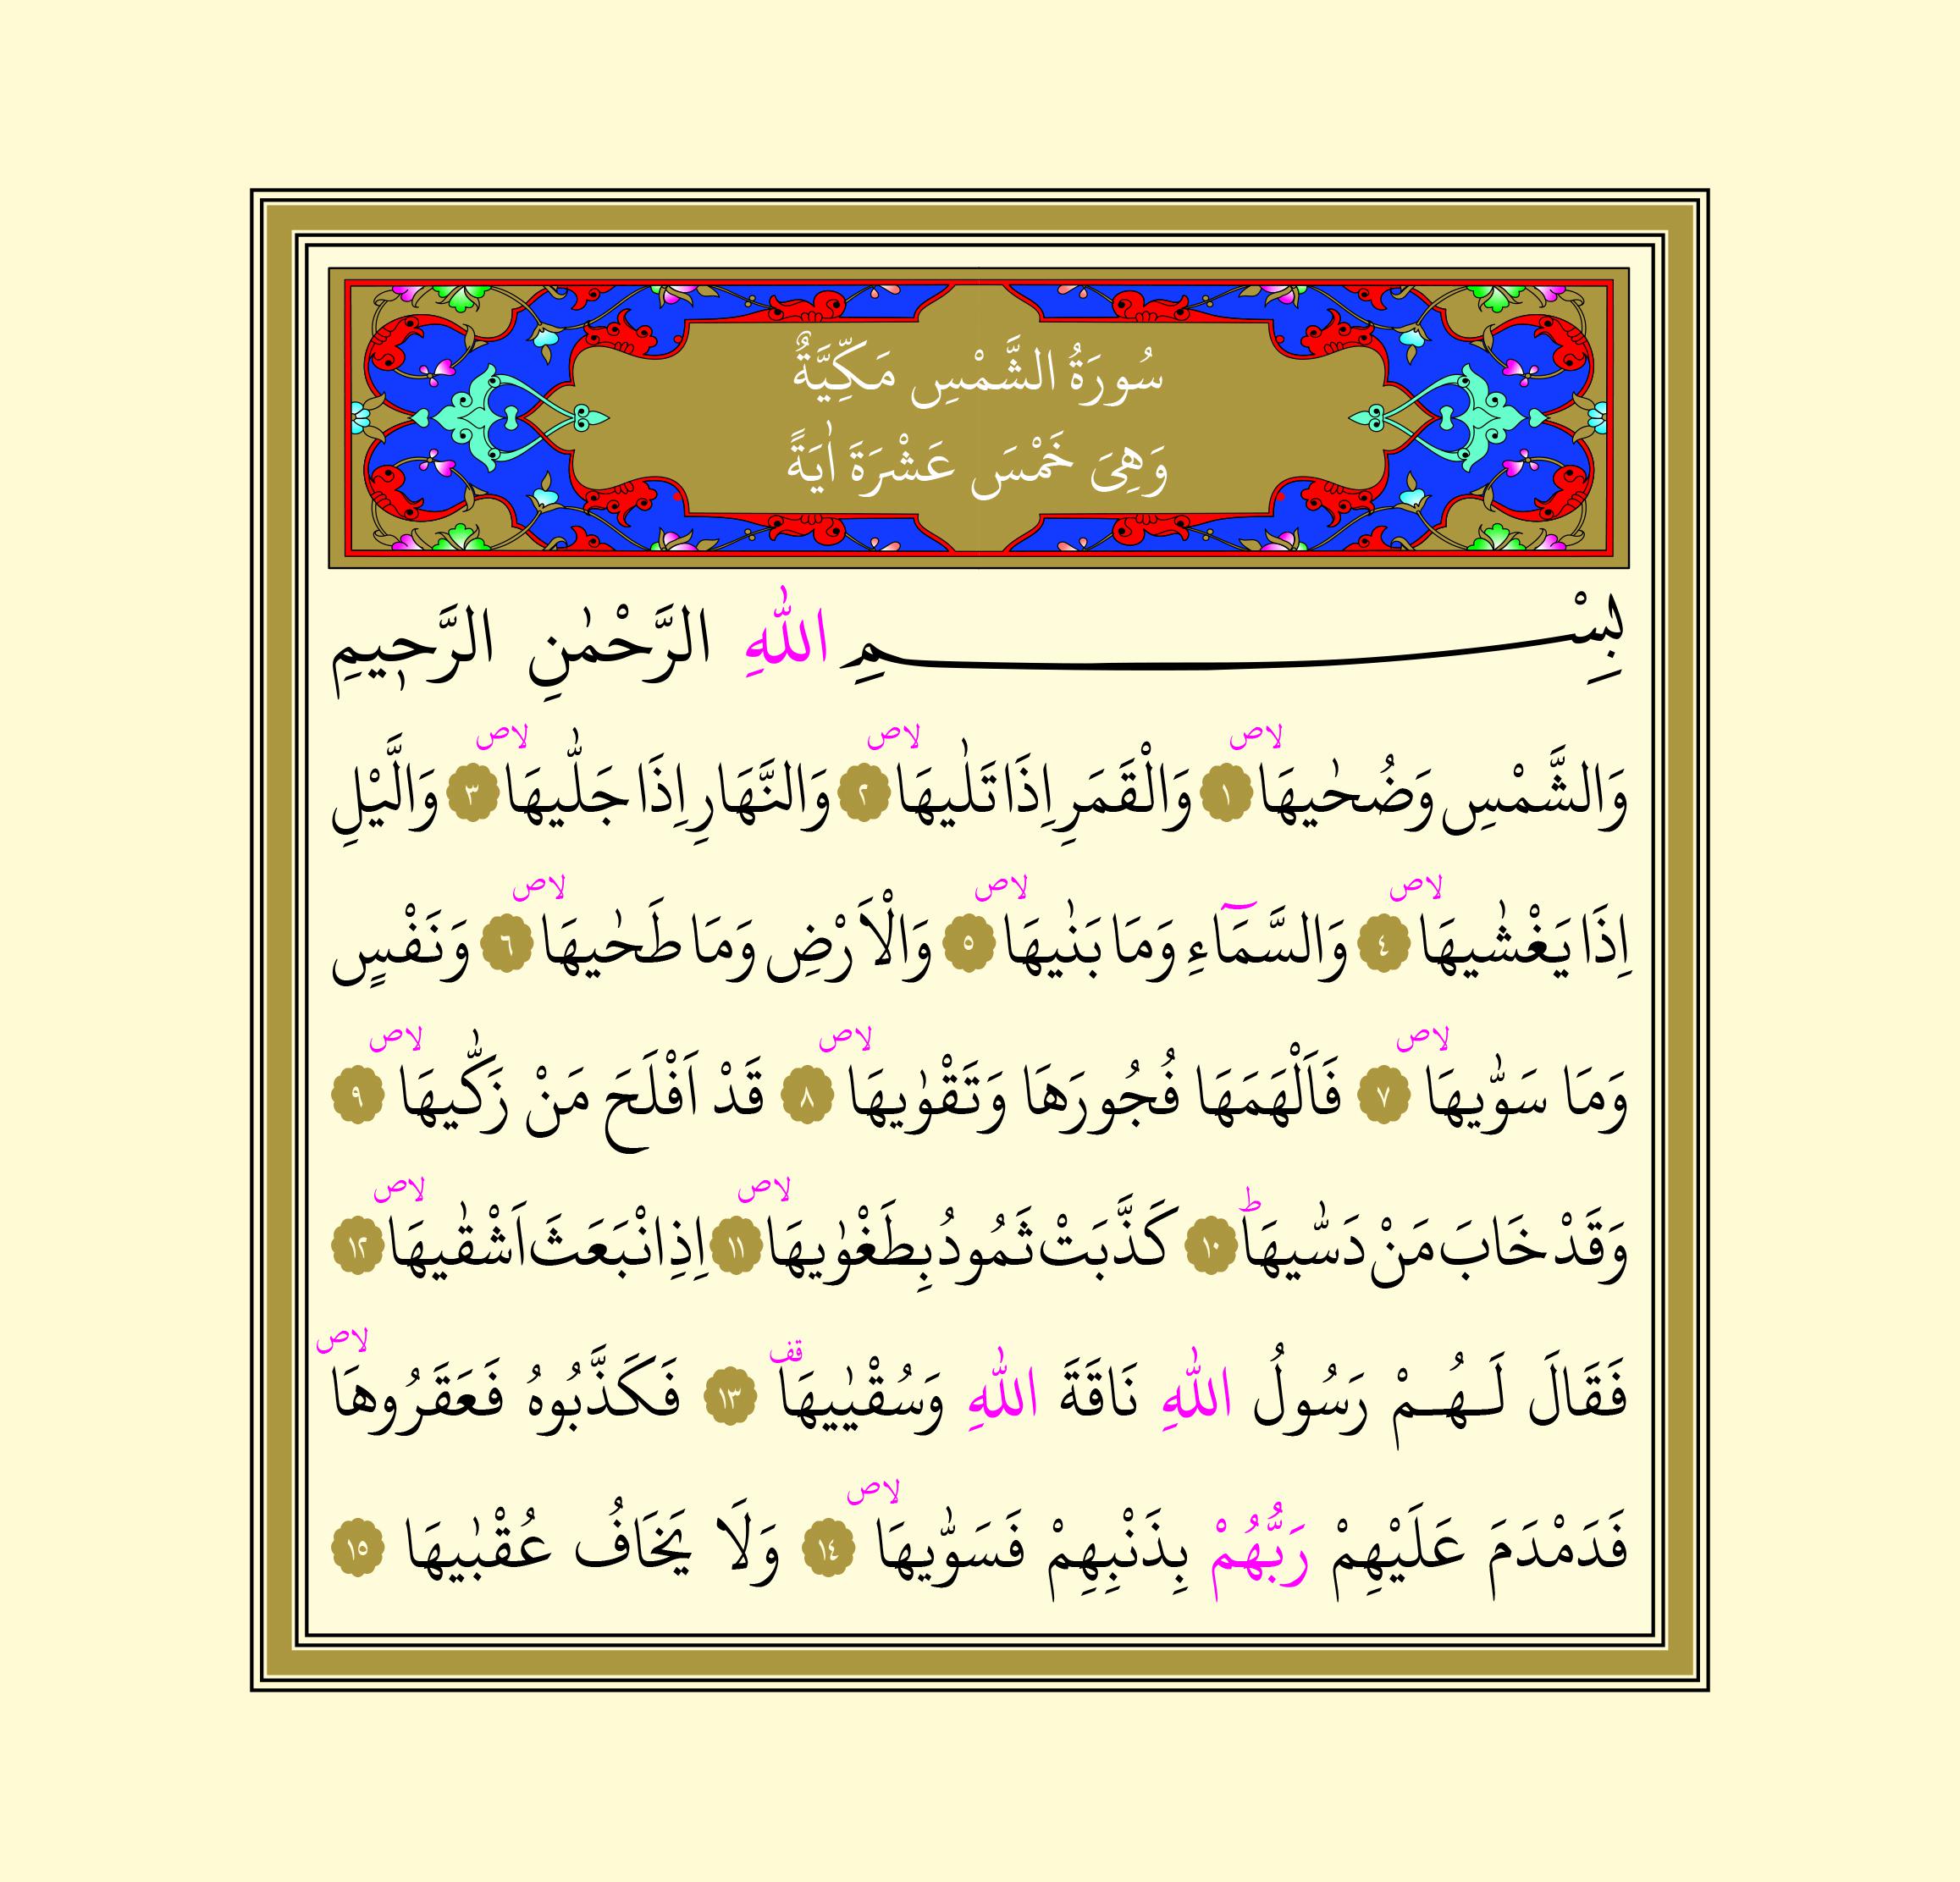 سُورَةُ الشَّمْسِ مَكِّيَّةٌ
وَهِىَ خَمْسَ عَشْرَةَ اٰيَةً
بِسْمِ اللّٰهِ الرَّحْمٰنِ الرَّحٖيمِ
وَالشَّمْسِ وَضُحٰيهَا لاص ١ وَالْقَمَرِ اِذَا تَلٰيهَا لاص ٢ وَالنَّهَارِ اِذَا جَلّٰيهَا لاص ٣ وَالَّيْلِ
اِذَا يَغْشٰيهَا لاص ٤ وَالسَّمَٓاءِ وَمَا بَنٰيهَا لاص ٥ وَالْاَرْضِ وَمَا طَحٰيهَا لاص ٦ وَنَفْسٍ
وَمَا سَوّٰيهَا لاص ٧ فَاَلْهَمَهَا فُجُورَهَا وَتَقْوٰيهَا لاص ٨ قَدْ اَفْلَحَ مَنْ زَكّٰيهَا لاص ٩
وَقَدْ خَابَ مَنْ دَسّٰيهَا ط ١٠ كَذَّبَتْ ثَمُودُ بِطَغْوٰيهَا لاص ١١ اِذِ انْبَعَثَ اَشْقٰيهَا لاص ١٢
فَقَالَ لَهُمْ رَسُولُ اللّٰهِ نَاقَةَ اللّٰهِ وَسُقْيٰيهَا قف ١٣ فَكَذَّبُوهُ فَعَقَرُوهَا لاص
فَدَمْدَمَ عَلَيْهِمْ رَبُّهُمْ بِذَنْبِهِمْ فَسَوّٰيهَا لاص ١٤ وَلَا يَخَافُ عُقْبٰيهَا ١٥